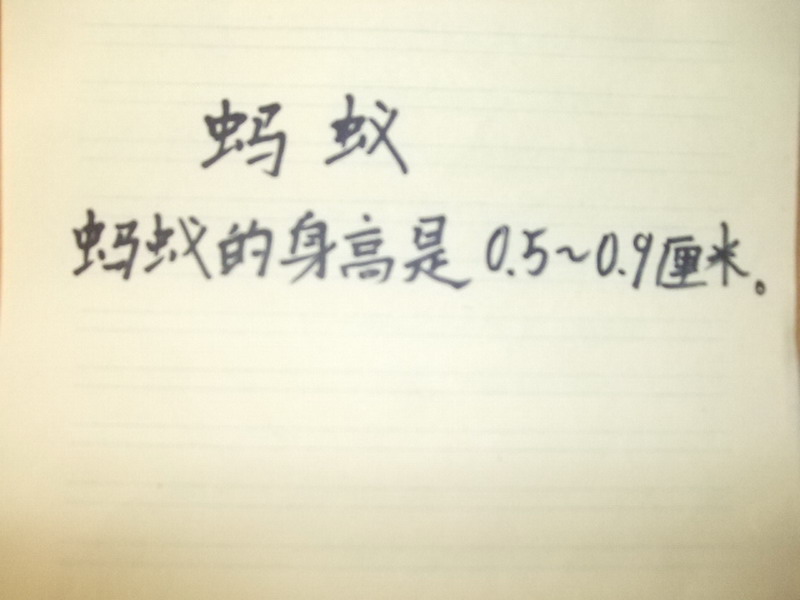 蚂蚁
蚂蚁的身高是0.5~0.9厘米。